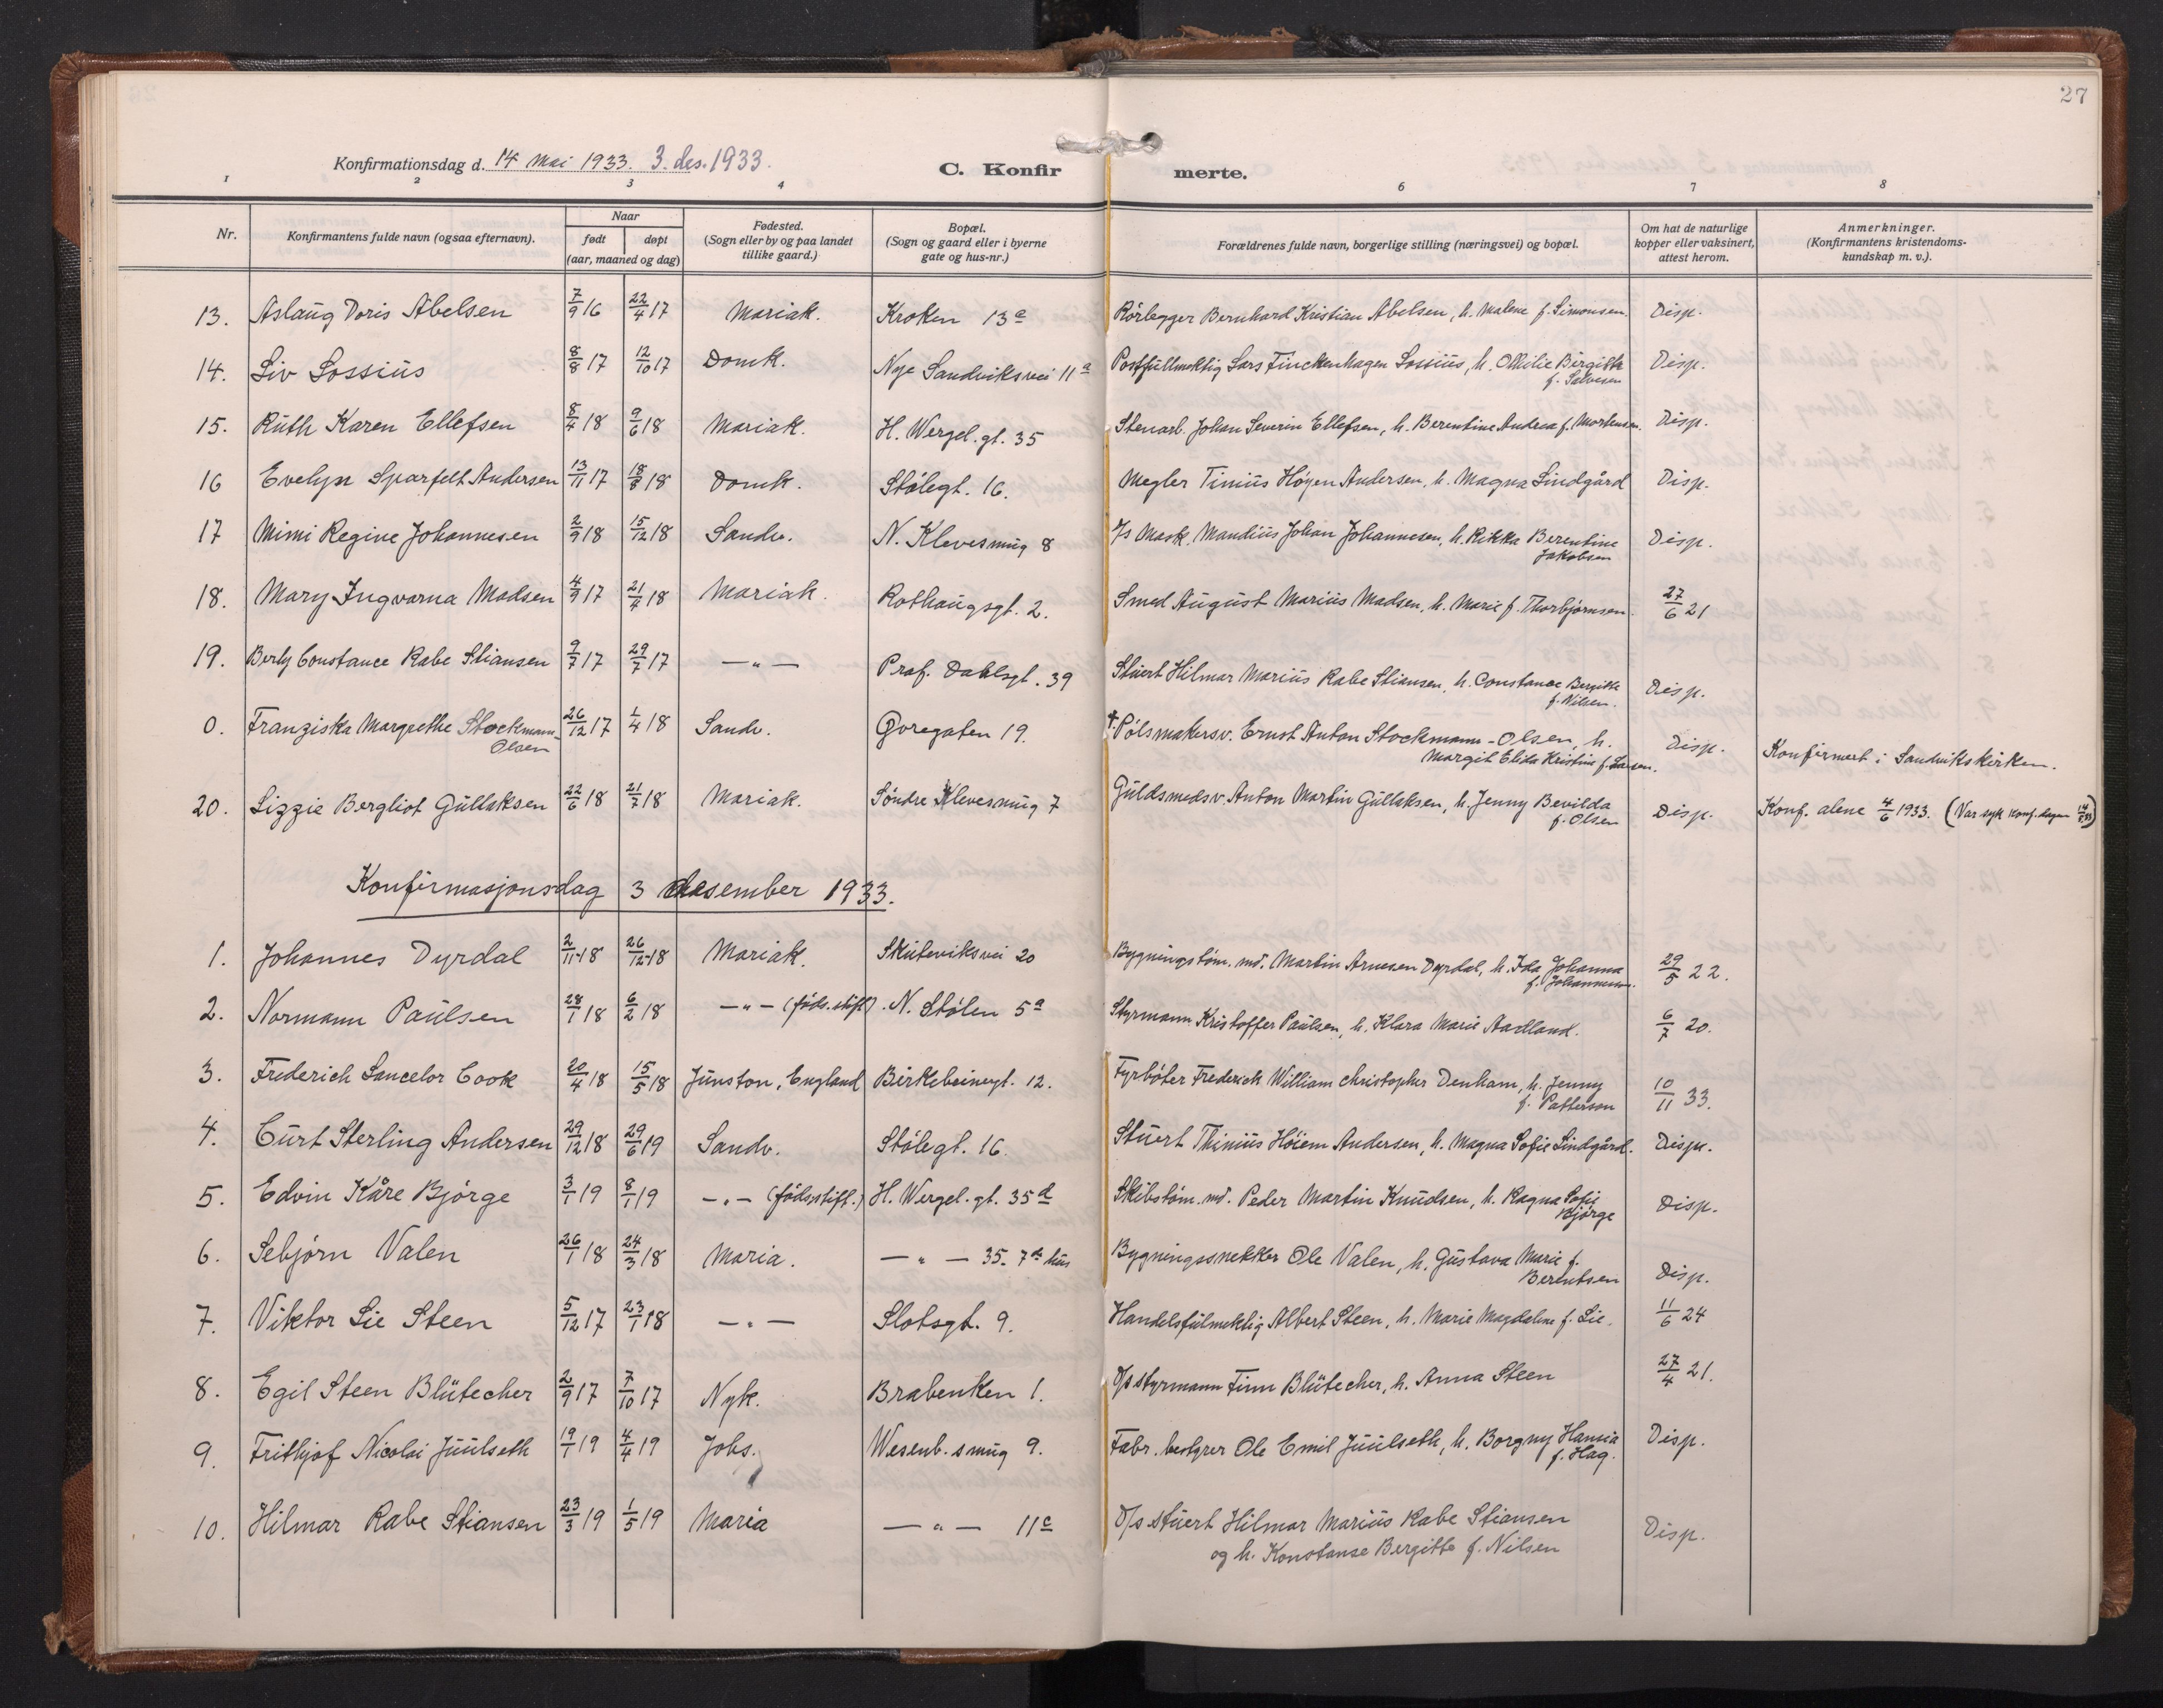 27
Konfirmationsdag d. 14 Mai 1933. 3. des. 1933.
C. Konfirmerte.
1 2 3 4 6 7 8
Nr.
Konfirmantens fulde navn (ogsaa efternavn).
Naar
født døpt
(aar, maaned og dag)
Fødested.
(Sogn eller by og paa landet
tillike gaard.)
Bopæl.
(Sogn og gaard eller i byerne
gate og hus-nr.)
Forældrenes fulde navn, borgerlige stilling (næringsvei) og bopæl.
Om hat de naturlige
kopper eller vaksinert,
attest herom.
Anmerkninger.
(Konfirmantens kristendoms-
kundskap m. v.).
13. Aslaug Doris Abelsen 7/9 16 22/4 17 Mariak. Kroken 13a Rörlegger Bernhard Kristian Abelsen, h. Malene f. Simonsen. Disp.
14. Liv Lossius 8/8 17 12/10 17 Domk. Nye Sandviksvei 11a Postfullmektig Lars Finckenhagen Lossius, h. Ottilie Birgitte Disp.
f. Salvesen
15. Ruth Karen Ellefsen 8/4 18 9/6 18 Mariak. H. Wergel. gt. 35 Stenarb. Johan Severin Ellefsen, h. Berentine Andrea f. Mortensen. Disp.
16 Evelyn Sparfelt Andersen 13/11 17 18/8 18 Domk. Stölegt. 16. Megler Tinius Höyen Andersen, h. Magna Lindgård Disp.
17 Mimi Regine Johannesen 2/9 18 15/12 18 Sandv. N. Klevesmug 8 Mask. Mandius Johan Johannesen, h. Rikka Berentine Disp.
Jakobsen
18. Mary Ingvarna Madsen 4/9 17 21/4 18 Mariak. Rothaugsgt. 2. Smed August Marius Madsen, h. Marie f. Thorbjörnsen. 27/6 21
19. Berly Constance Rabe Stiansen 9/7 17 29/7 17 — " — Prof. Dahlsgt. 39 Stuert Hilmar Marius Rabe Stiansen, h. Constance Bergitte Disp.
f. Nilsen.
0. Franziska Margrethe Stockmann- 26/12 17 1/4 18 Sandv. Øvregaten 19. † Pölsmakersv. Ernst Anton Stockmann-Olsen, h. Disp. Konfirmert i Sandvikskirken.
Olsen Margit Elida Kristine f. Larsen.
20. Lizzie Bergliot Gullaksen 22/6 18 21/7 18 Mariak. Söndre Klevesmug 7 Guldsmedsv. Anton Martin Gullaksen, h. Jenny Bevilda Disp. Konf. alene 4/6 1933. (Var syk konf. dagen 14/5 33)
f. Olsen
Konfirmasjonsdag 3 desember 1933.
1. Johannes Dyrdal 2/11 18 26/12 18 Mariak. Skuteviksvei 20 Bygningstöm. md. Martin Arnesen Dyrdal, h. Ida Johanna 29/5 22.
f. Johannesen.
2. Normann Paulsen 28/1 18 6/2 18 — " — (föds. stift). N. Stölen 5a Styrmann Kristoffer Paulsen, h. Klara Marie Aadland. 6/7 20.
3. Frederich Lancelor Cook 20/4 18 15/5 18 Junston, England Birkebeinergt. 12. Fyrböter Frederick William Christopher Denham, h. Jenny 10/11 33.
f. Patterson
4. Curt Sterling Andersen 29/12 18 29/6 19 Sandv. Stölegt. 16. Stuert Thinius Höiem Andersen, h. Magna Sofie Lindgård. Disp.
5. Edvin Kåre Bjørge 3/1 19 8/1 19 — " — (födsstift.) H. Wergel. gt. 35d Skibstöm. md. Peder Martin Knudsen, h. Ragna Sofie Disp.
Bjørge
6. Sebjörn Valen 26/1 18 24/3 18 Maria. — " — 35. 7de hus Bygningssnekker Ole Valen, h. Gustava Marie f. Disp.
Berentsen
7. Viktor Lie Steen 5/12 17 23/1 18 — " — Slotsgt. 9. Handelsfulmektig Albert Steen, h. Marie Magdalene f. Lie. 11/6 24
8. Egil Steen Blütecher 2/9 17 7/10 17 Nyk. Brabenken 1. D/s styrmann Finn Blütecher, h. Anna Steen 27/4 21.
9. Frithjof Nicolai Juulseth 19/1 19 4/4 19 Johs. Wesenb. smug 9. Fabr. bestyrer Ole Emil Juulseth, h. Borgny Hansia Disp.
f. Hag.
10. Hilmar Rabe Stiansen 23/3 19 1/5 19 Maria — " — 11c D/s stuert Hilmar Marius Rabe Stiansen Disp.
og h. Konstanse Bergitte f. Nilsen